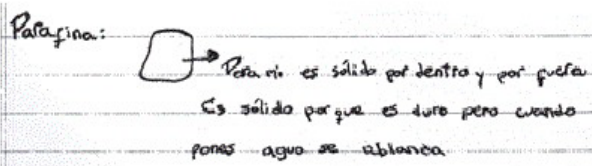 Parafina:
Para mi es sólido por dentro y por fuera
Es sólido por que es duro pero cuando
pones agua se ablanca